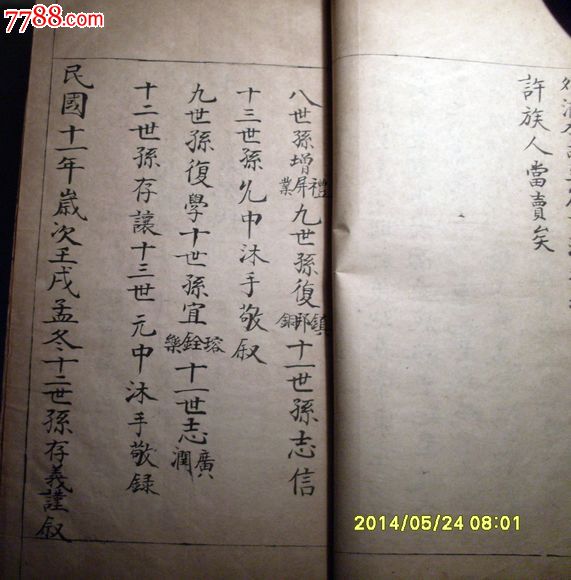 7788.com
許族人當賣矣
八世孫增禮屏業九世孫復鎮邦銅十一世孫志信
十三世孫允中沐手敬叙
九世孫復學十世孫宜瑢銓樂十一世志廣潤
十二世孫存讓十三世元中沐手敬錄
民國十一年歲次壬戌孟冬十二世孫存義謹叙
2014/05/24 08:01